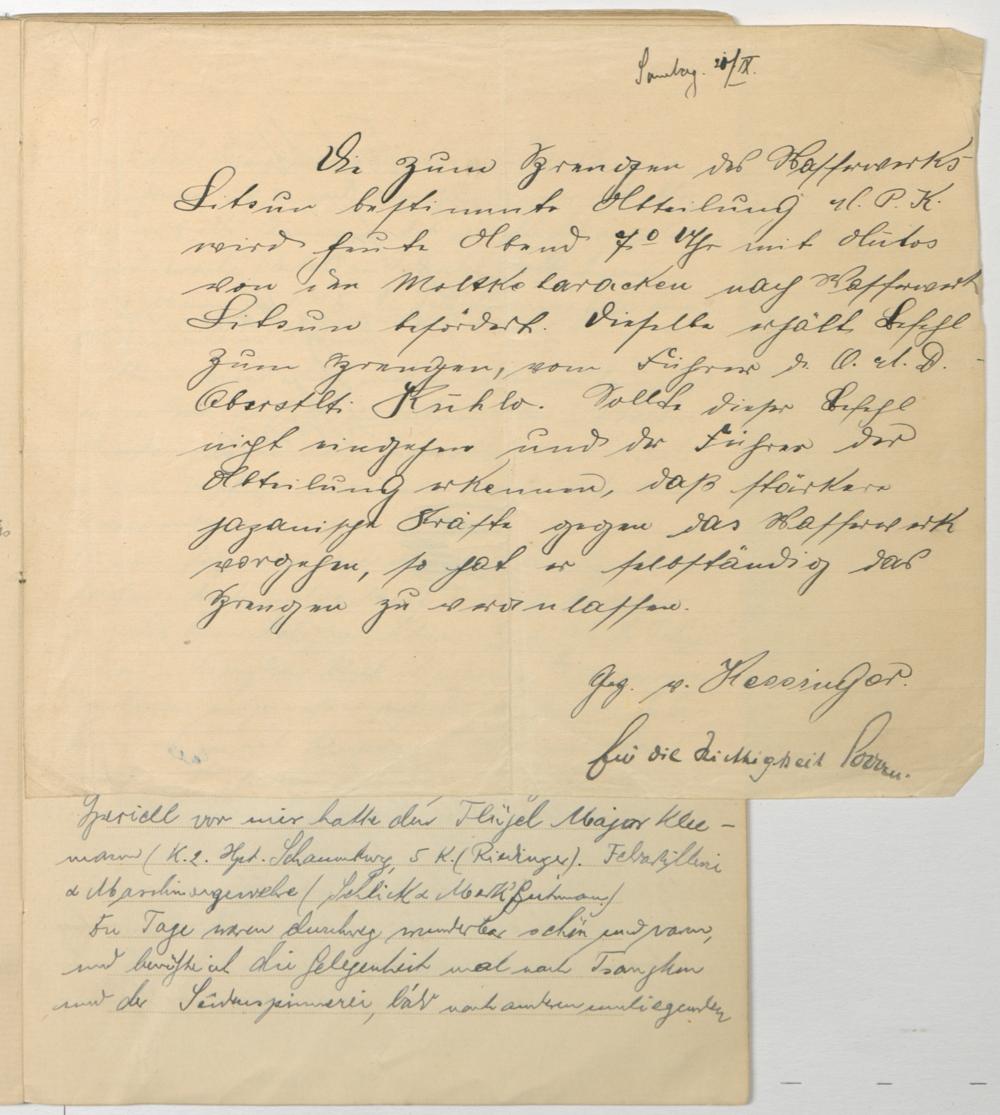 Sonntag. 20/IX.
Die zum Sprengen des Wasserwerks
Litsun bestimmte Abteilung M. P. K.
wird heute Abend 7⁰ Uhr mit Autos
von den Moltkebaracken nach Wasserwerk
Litsun befördert. Dieselbe erhält Befehl
zum Sprengen, vom Führer d. O. M. D.
Oberstlt. Kuhlo. Sollte dieser Befehl
nicht eingehen und der Führer der
Abteilung erkennen, daß stärkere
japanische Kräfte gegen das Wasserwerk
vorgehen, so hat er selbständig das
Sprengen zu veranlassen.
Gez. v. Kessinger.
für die Richtigkeit
vor mir hatte den Flügel Major Klee-
mann (K. 2. Hpt. Schaumburg, 5 K. (Riedinger).
& Maschinengewehre (Schlick &
Tage waren durchweg wunderbar schön und warm,
und die Gelegenheit mal nach Tsangkou
und der Seidenspinnerei, bald nach anderen umliegenden